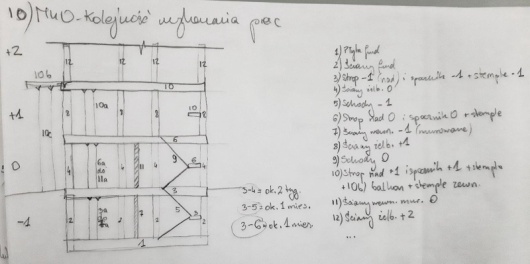 10) MWO-Kolejność wykonania prac
+2
+1
0
-1
10b
10c
12 12 12 12
10
10a
8 8 8
10
6
6a
do
11a
11
9
6
3
3a
7
5
3
2
1
3-4 = ok. 2 tyg.
3-5 = ok. 1 mies.
3-6 = ok. 1 mies
1) Płyta fund
2) Ściany fund
3) Strop -1 (nad) i spocznik -1 + stemple -1
4) Ściany żelb. 0
5) Schody -1
6) Strop nad 0 i spocznik 0 + stemple
7) Ściany wewn. -1 (murowane)
8) Ściany żelb. +1
9) Schody 0
10) Strop nad +1 i spocznik +1 + stemple
+10b) balkon + stemple zewn.
11) Ściany wewn. mur. 0
12) Ściany żelb. +2
...